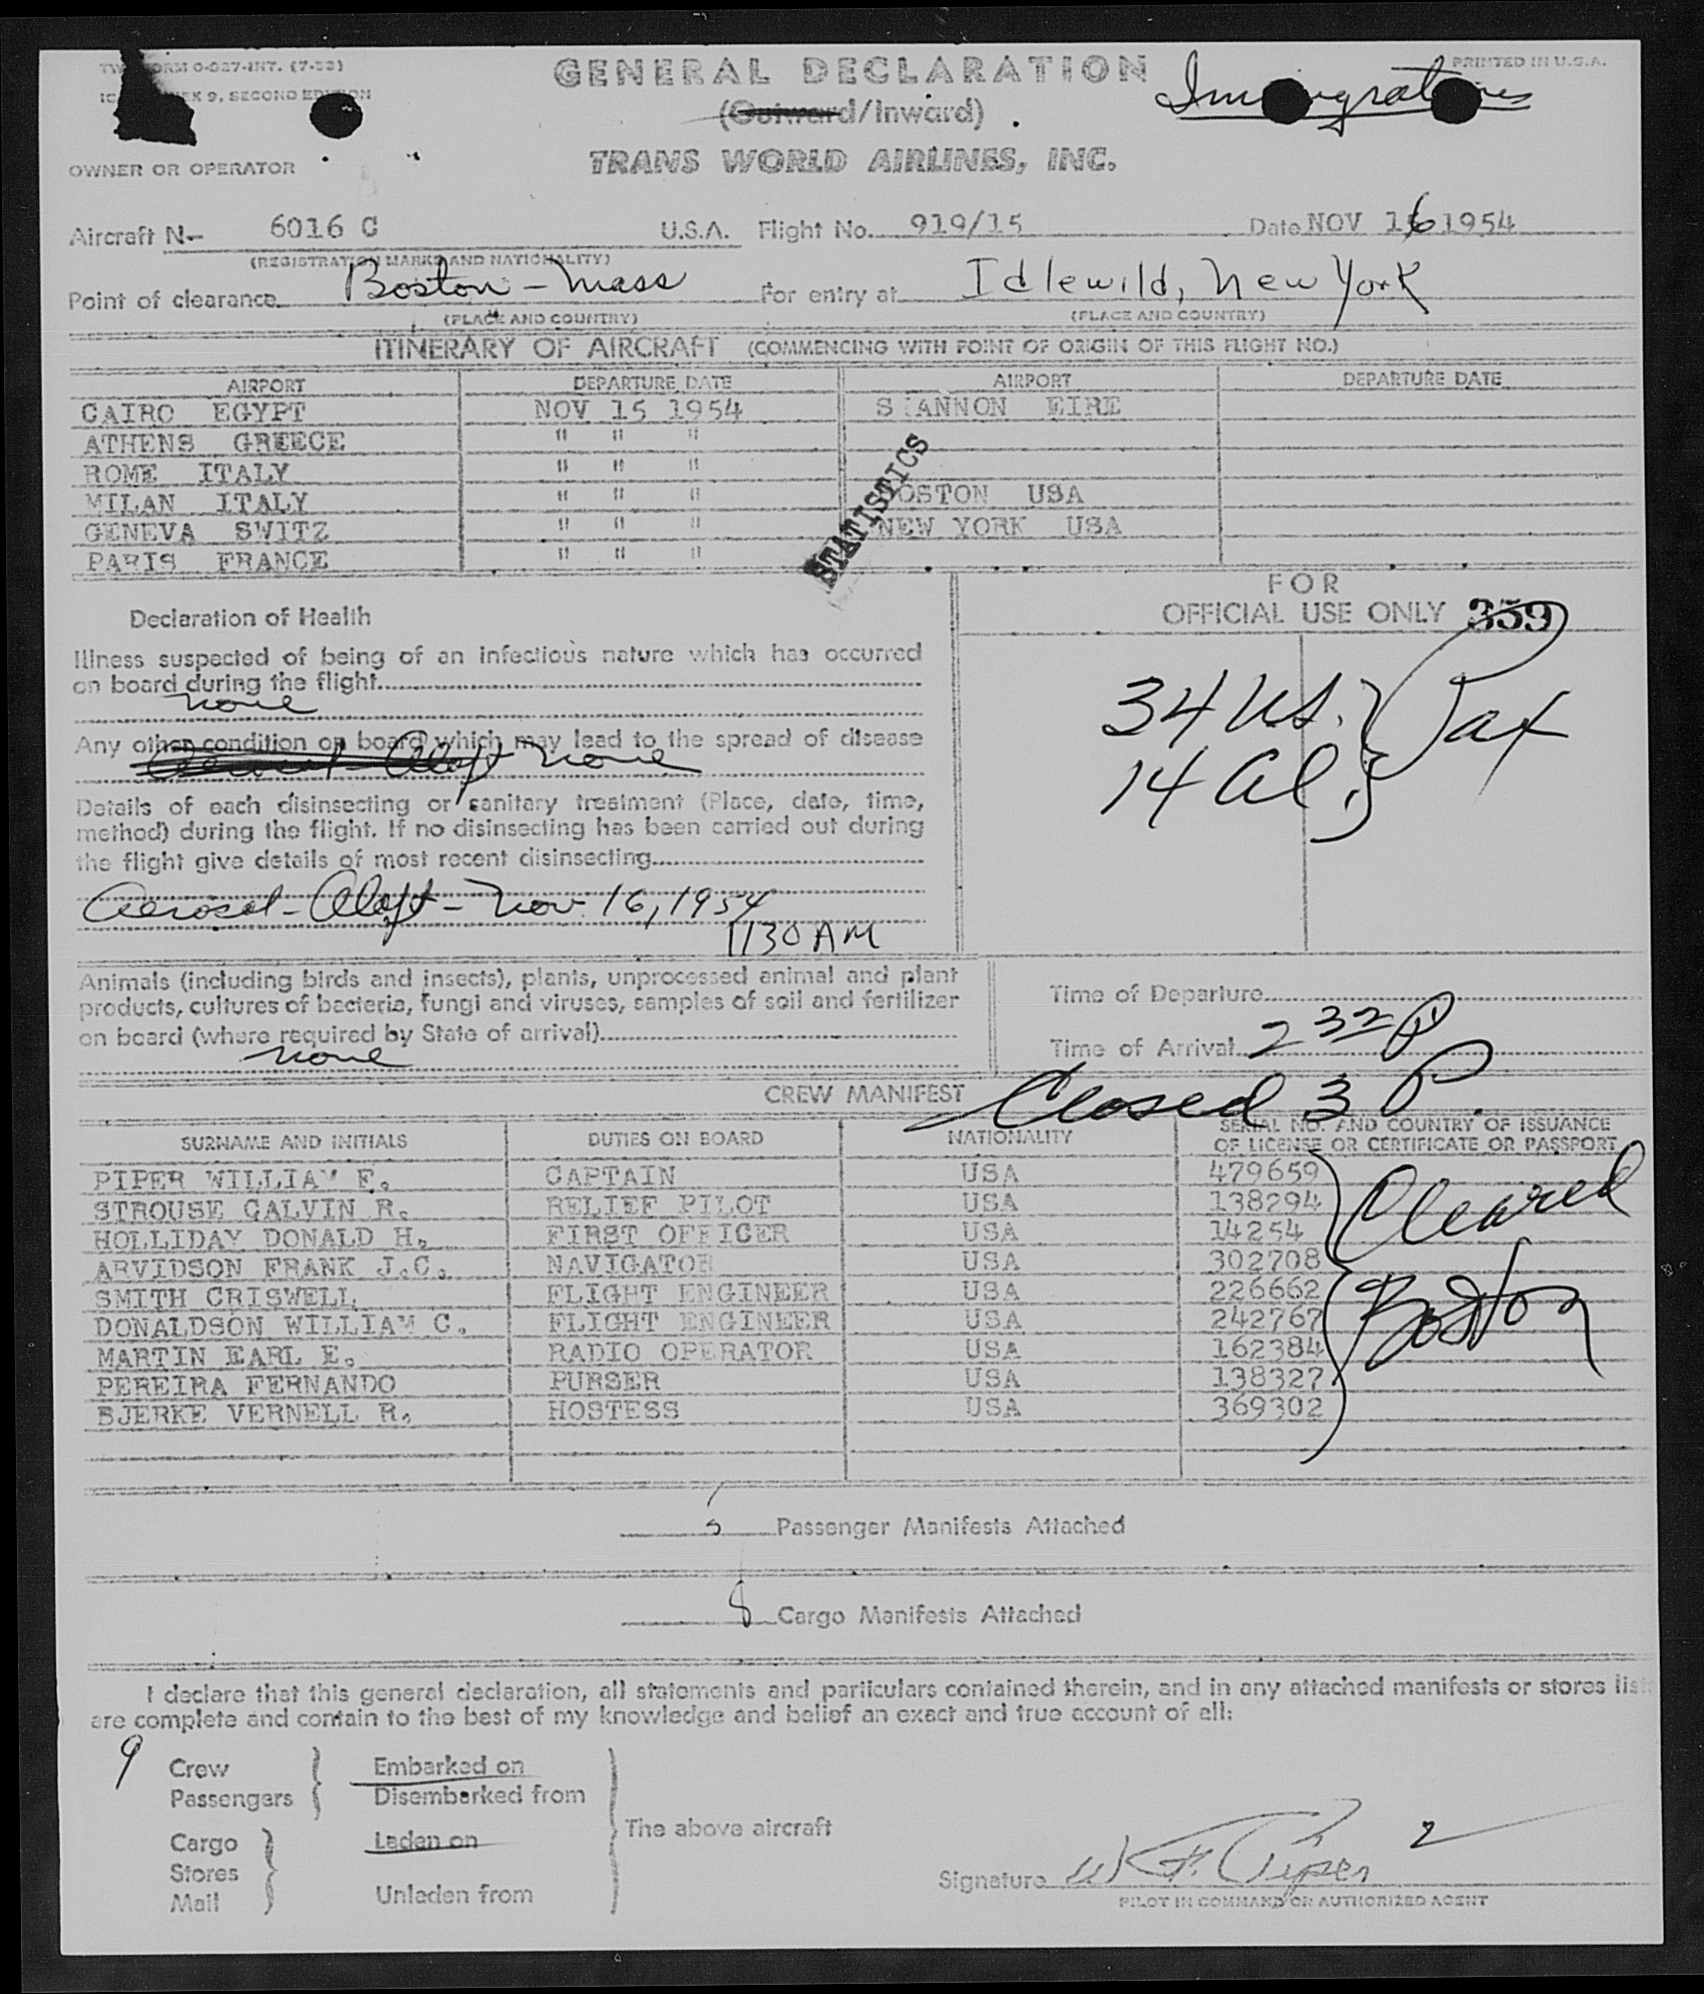 GENERAL DECLARATION
PRINTED IN U.S.A.
9, SECOND EDITION
(Outward/Inward)
TRANS WORLD AIRLINES, INC.
OWNER OR OPERATOR
Aircraft N- 6016 C U.S.A. Flight No. 919/15 Date NOV 16 1954
(REGISTRATION MARKS AND NATIONALITY)
Point of clearance Boston - Mass For entry at Idlewild, New York
(PLACE AND COUNTRY) (PLACE AND COUNTRY)
ITINERARY OF AIRCRAFT (COMMENCING WITH POINT OF ORIGIN OF THIS FLIGHT NO.)
AIRPORT DEPARTURE DATE AIRPORT DEPARTURE DATE
CAIRO EGYPT NOV 15 1954 SHANNON EIRE
ATHENS GREECE " " "
ROME ITALY " " "
MILAN ITALY " " " BOSTON USA
GENEVA SWITZ " " " NEW YORK USA
PARIS FRANCE " " "
STATISTICS
FOR
OFFICIAL USE ONLY 359
Declaration of Health
Illness suspected of being of an infectious nature which has occurred
on board during the flight
none
Any other condition on board which may lead to the spread of disease
Aerosol - Aloft none
Details of each disinsecting or sanitary treatment (Place, date, time,
method) during the flight. If no disinsecting has been carried out during
the flight give details of most recent disinsecting
Aerosol - Aloft - Nov. 16, 1954
1130 AM
34 US. } Pax
14 Al. }
Animals (including birds and insects), plants, unprocessed animal and plant
products, cultures of bacteria, fungi and viruses, samples of soil and fertilizer
on board (where required by State of arrival)
none
Time of Departure
Time of Arrival 2 32 P
Closed 3 P.
CREW MANIFEST
SURNAME AND INITIALS DUTIES ON BOARD NATIONALITY SERIAL NO. AND COUNTRY OF ISSUANCE
OF LICENSE OR CERTIFICATE OR PASSPORT
PIPER WILLIAM F. CAPTAIN USA 479659
STROUSE CALVIN R. RELIEF PILOT USA 138294
HOLLIDAY DONALD H. FIRST OFFICER USA 14254
ARVIDSON FRANK J.C. NAVIGATOR USA 302708
SMITH CRISWELL FLIGHT ENGINEER USA 226662
DONALDSON WILLIAM C. FLIGHT ENGINEER USA 242767
MARTIN EARL E. RADIO OPERATOR USA 162384
PEREIRA FERNANDO PURSER USA 138327
BJERKE VERNELL R. HOSTESS USA 369302
Cleared
Boston
Passenger Manifests Attached
8 Cargo Manifests Attached
I declare that this general declaration, all statements and particulars contained therein, and in any attached manifests or stores list
are complete and contain to the best of my knowledge and belief an exact and true account of all:
9 Crew Embarked on
Passengers Disembarked from
The above aircraft
Cargo Laden on
Stores
Mail Unladen from
Signature W F. Piper 2
PILOT IN COMMAND OR AUTHORIZED AGENT